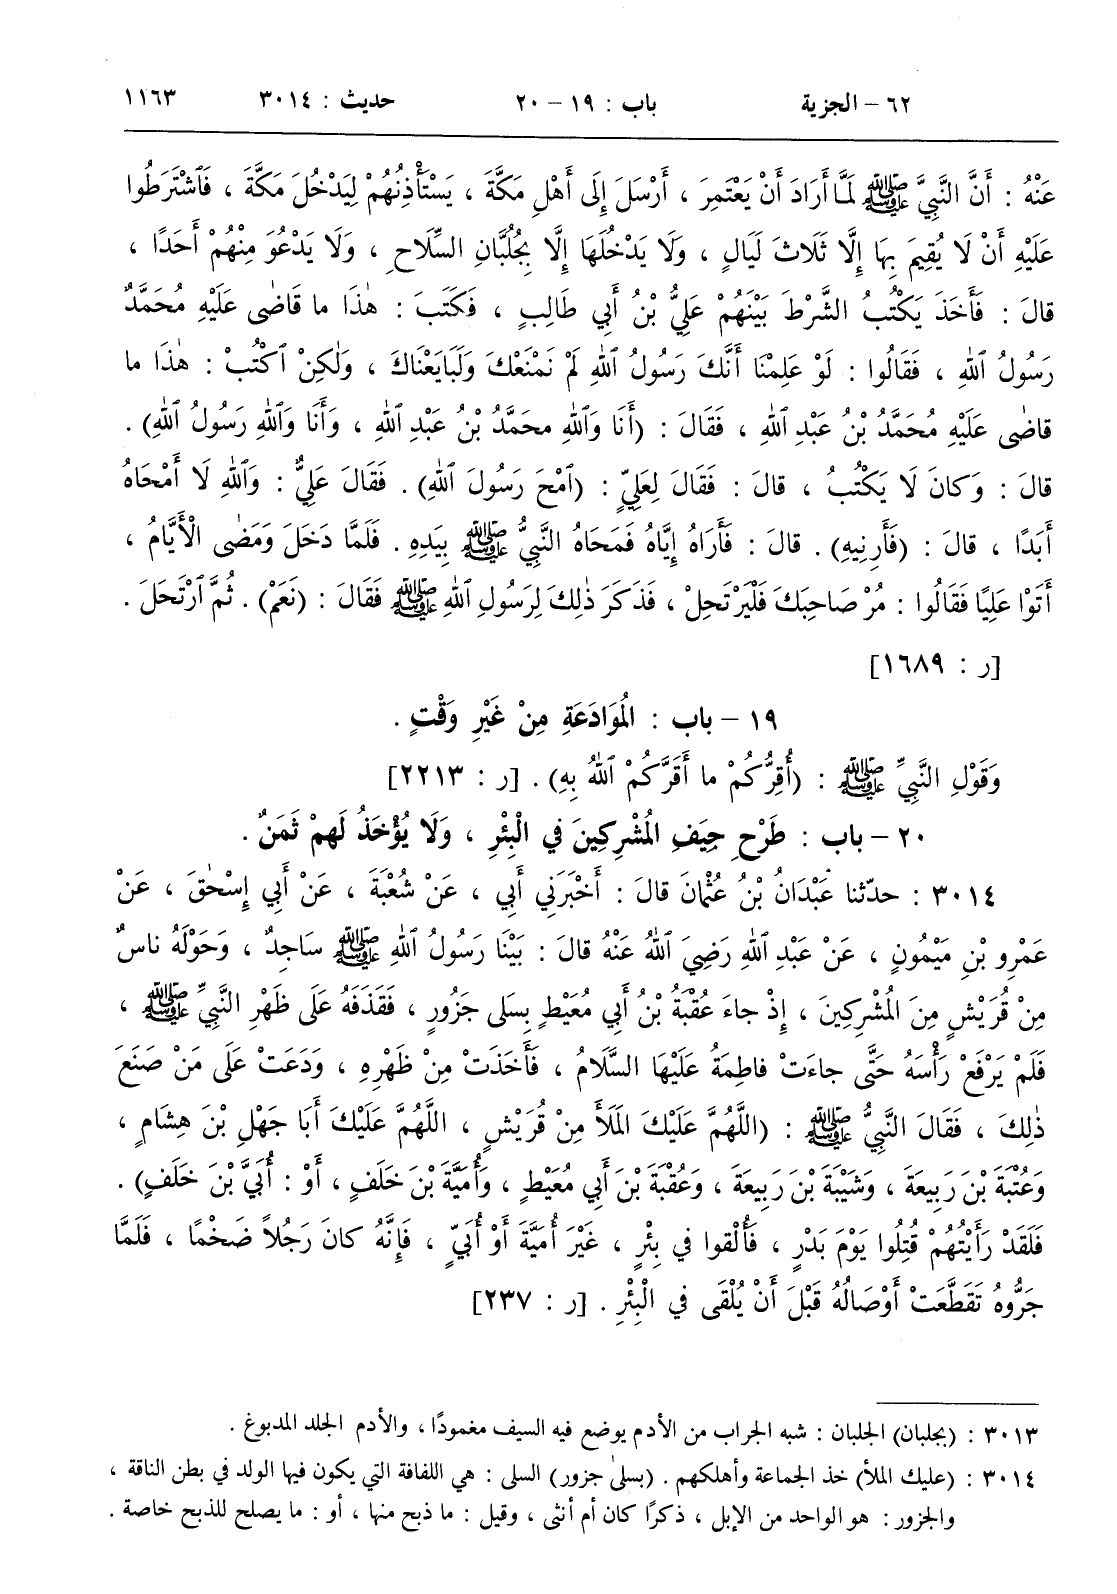 ٦٢ – الجزية باب : ١٩ – ٢٠ حديث : ٣٠١٤ ١١٦٣
عَنْهُ : أَنَّ النَّبِيَّ ﷺ لَمَّا أَرَادَ أَنْ يَعْتَمِرَ ، أَرْسَلَ إِلَى أَهْلِ مَكَّةَ ، يَسْتَأْذِنُهُمْ لِيَدْخُلَ مَكَّةَ ، فَٱشْتَرَطُوا
عَلَيْهِ أَنْ لَا يُقِيمَ بِهَا إِلَّا ثَلَاثَ لَيَالٍ ، وَلَا يَدْخُلَهَا إِلَّا بِجُلُبَّانِ السِّلَاحِ ، وَلَا يَدْعُوَ مِنْهُمْ أَحَدًا ،
قالَ : فَأَخَذَ يَكْتُبُ الشَّرْطَ بَيْنَهُمْ عَلِيُّ بْنُ أَبِي طَالِبٍ ، فَكَتَبَ : هٰذَا ما قَاضٰى عَلَيْهِ مُحَمَّدٌ
رَسُولُ ٱللهِ ، فَقَالُوا : لَوْ عَلِمْنَا أَنَّكَ رَسُولُ ٱللهِ لَمْ نَمْنَعْكَ وَلَبَايَعْنَاكَ ، وَلٰكِنْ ٱكْتُبْ : هٰذَا ما
قاضٰى عَلَيْهِ مُحَمَّدُ بْنُ عَبْدِ ٱللهِ ، فَقَالَ : (أَنَا وَٱللهِ محَمَّدُ بْنُ عَبْدِ ٱللهِ ، وَأَنَا وَٱللهِ رَسُولُ ٱللهِ) .
قالَ : وَكانَ لَا يَكْتُبُ ، قالَ : فَقَالَ لِعَلِيٍّ : (ٱمْحَ رَسُولَ ٱللهِ) . فَقَالَ عَلِيٌّ : وَٱللهِ لَا أَمْحَاهُ
أَبَدًا ، قالَ : (فَأَرِنِيهِ) . قالَ : فَأَرَاهُ إِيَّاهُ فَمَحَاهُ النَّبِيُّ ﷺ بِيَدِهِ . فَلَمَّا دَخَلَ وَمَضٰى الْأَيَّامُ ،
أَتَوْا عَلِيًّا فَقَالُوا : مُرْ صَاحِبَكَ فَلْيَرْتَحِلْ ، فَذَكَرَ ذٰلِكَ لِرَسُولِ ٱللهِ ﷺ فَقَالَ : (نَعَمْ) . ثُمَّ ٱرْتَحَلَ .
[ر : ١٦٨٩]
١٩ – باب : الْمُوَادَعَةِ مِنْ غَيْرِ وَقْتٍ .
وَقَوْلِ النَّبِيِّ ﷺ : (أُقِرُّكُمْ ما أَقَرَّكُمْ ٱللهُ بِهِ) . [ر : ٢٢١٣]
٢٠ – باب : طَرْحِ جِيَفِ الْمُشْرِكِينَ فِي الْبِئْرِ ، وَلَا يُؤْخَذُ لَهمْ ثَمَنٌ .
٣٠١٤ : حدّثنا عَبْدَانُ بْنُ عُثْمانَ قالَ : أَخْبَرَنِي أَبِي ، عَنْ شُعْبَةَ ، عَنْ أَبِي إِسْحٰقَ ، عَنْ
عَمْرِو بْنِ مَيْمُونٍ ، عَنْ عَبْدِ ٱللهِ رَضِيَ ٱللهُ عَنْهُ قالَ : بَيْنَا رَسُولُ ٱللهِ ﷺ ساجِدٌ ، وَحَوْلَهُ ناسٌ
مِنْ قُرَيْشٍ مِنَ الْمُشْرِكِينَ ، إِذْ جاءَ عُقْبَةُ بْنُ أَبِي مُعَيْطٍ بِسَلى جَزُورٍ ، فَقَذَفَهُ عَلَى ظَهْرِ النَّبِيِّ ﷺ ،
فَلَمْ يَرْفَعْ رَأْسَهُ حَتَّى جاءَتْ فاطِمَةُ عَلَيْهَا السَّلَامُ ، فَأَخَذَتْ مِنْ ظَهْرِهِ ، وَدَعَتْ عَلَى مَنْ صَنَعَ
ذٰلِكَ ، فَقَالَ النَّبِيُّ ﷺ : (اللَّهُمَّ عَلَيْكَ الْمَلَأَ مِنْ قُرَيْشٍ ، اللَّهُمَّ عَلَيْكَ أَبَا جَهْلِ بْنَ هِشَامٍ ،
وَعُتْبَةَ بْنَ رَبِيعَةَ ، وَشَيْبَةَ بْنَ رَبِيعَةَ ، وَعُقْبَةَ بْنَ أَبِي مُعَيْطٍ ، وَأُمَيَّةَ بْنَ خَلَفٍ ، أَوْ : أُبَيَّ بْنَ خَلَفٍ) .
فَلَقَدْ رَأَيْتُهُمْ قُتِلُوا يَوْمَ بَدْرٍ ، فَأُلْقوا فِي بِئْرٍ ، غَيْرَ أُمَيَّةَ أَوْ أُبَيٍّ ، فَإِنَّهُ كانَ رَجُلاً ضَخْمًا ، فَلَمَّا
جَرُّوهُ تَقَطَّعَتْ أَوْصَالُهُ قَبْلَ أَنْ يُلْقَى فِي الْبِئْرِ . [ر : ٢٣٧]
٣٠١٣ : (بجلبان) الجلبان : شبه الجراب من الأدم يوضع فيه السيف مغمودًا ، والأدم الجلد المدبوغ .
٣٠١٤ : (عليك الملأ) خذ الجماعة وأهلكهم . (بسلىٰ جزور) السلى : هي اللفافة التي يكون فيها الولد في بطن الناقة ،
والجزور : هو الواحد من الإبل ، ذكرًا كان أم أنثى ، وقيل : ما ذبح منها ، أو : ما يصلح للذبح خاصة .